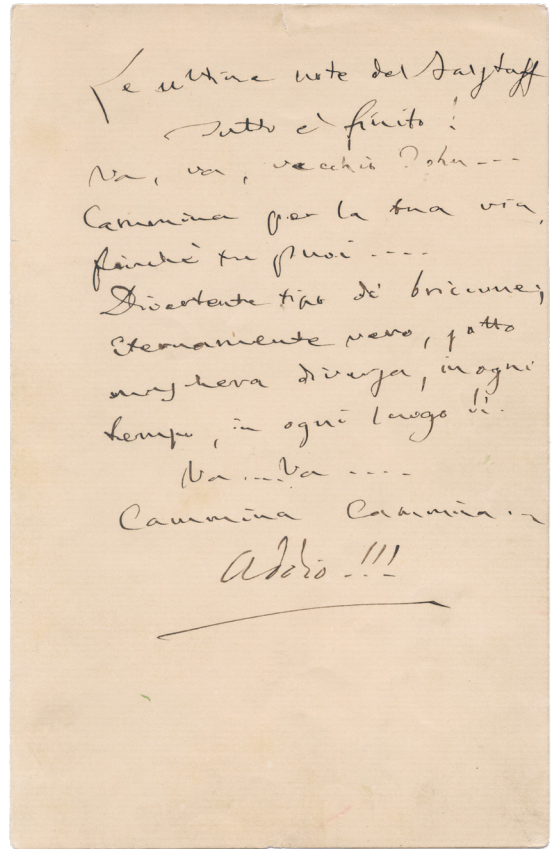 Le ultime note del Falstaff
Tutto è finito!
Va, va, vecchio John....
Cammina per la tua via,
finchè tu puoi....
Divertente tipo di briccone;
Eternamente vero, sotto
maschera diversa, in ogni
tempo, in ogni luogo!!
Va... Va....
Cammina Cammina...
Addio!!!